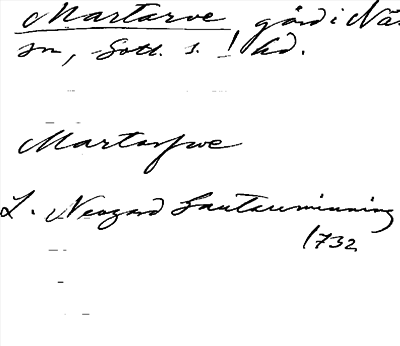 Martarve gård i Nä
sn, Gotl. s. ! hd.
Martarfwe
L. Neogard Gautauminning
1732